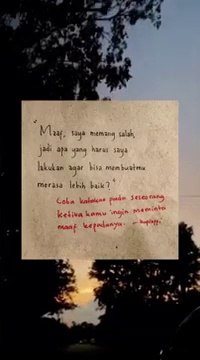 "Maaf, saya memang salah,
jadi apa yang harus saya
lakukan agar bisa membuatmu
merasa lebih baik?"
Coba katakan pada seseorang
ketika kamu ingin meminta
maaf kepadanya.